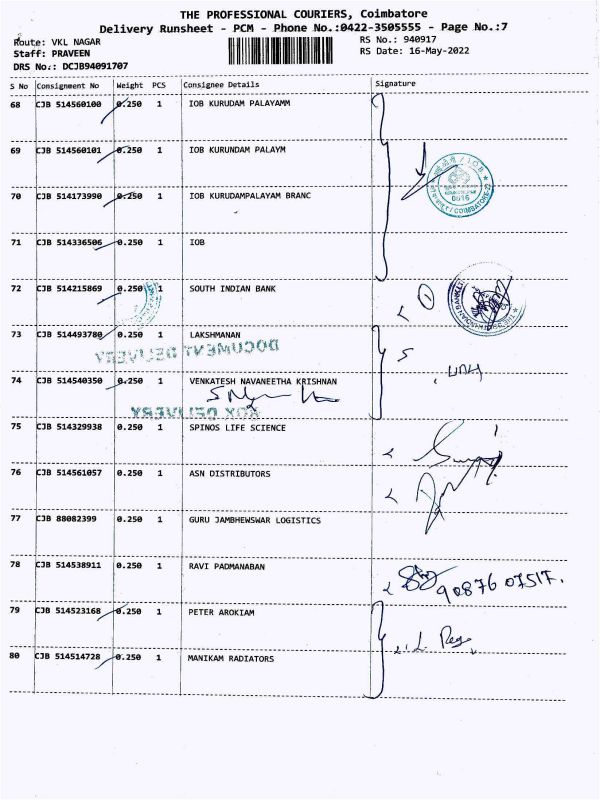 THE PROFESSIONAL COURIERS, Coimbatore
Delivery Runsheet - PCM - Phone No.:0422-3505555 - Page No.:7
Route: VKL NAGAR RS No.: 940917
Staff: PRAVEEN RS Date: 16-May-2022
DRS No.: DCJB94091707
S No Consignment No Weight PCS Consignee Details Signature
68 CJB 514560100 0.250 1 IOB KURUDAM PALAYAMM
69 CJB 514560101 0.250 1 IOB KURUNDAM PALAYM
70 CJB 514173990 0.250 1 IOB KURUDAMPALAYAM BRANC
71 CJB 514336506 0.250 1 IOB
72 CJB 514215869 0.250 1 SOUTH INDIAN BANK
73 CJB 514493780 0.250 1 LAKSHMANAN
DOCUMENT DELIVERY
74 CJB 514540350 0.250 1 VENKATESH NAVANEETHA KRISHNAN
BOX DELIVERY
75 CJB 514329938 0.250 1 SPINOS LIFE SCIENCE
76 CJB 514561057 0.250 1 ASN DISTRIBUTORS
77 CJB 88082399 0.250 1 GURU JAMBHEWSWAR LOGISTICS
78 CJB 514538911 0.250 1 RAVI PADMANABAN
90876 07517.
79 CJB 514523168 0.250 1 PETER AROKIAM
80 CJB 514514728 0.250 1 MANIKAM RADIATORS